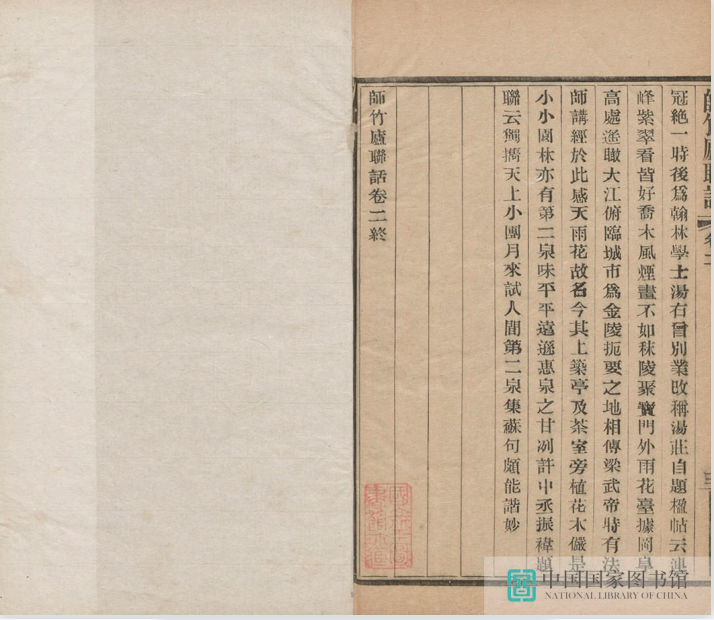 師竹廬聯話 卷二
冠絶一時後爲翰林學士湯右曾別業改稱湯莊自題楹帖云連
峰紫翠看皆好喬木風煙畫不如秣陵聚寶門外雨花臺據岡阜
高處遙瞰大江俯臨城市爲金陵扼要之地相傳梁武帝時有法
師講經於此感天雨花故名今其上築亭及茶室旁植花木儼是
小小園林亦有第二泉味平平遠遜惠泉之甘冽許中丞振褘題
聯云獨攜天上小團月來試人間第二泉集蘇句頗能諧妙
師竹廬聯話卷二終
中国国家图书馆
NATIONAL LIBRARY OF CHINA